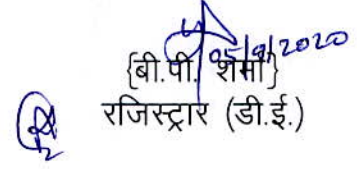 05/9/2020
{बी.पी. शर्मा}
रजिस्ट्रार (डी.ई.)